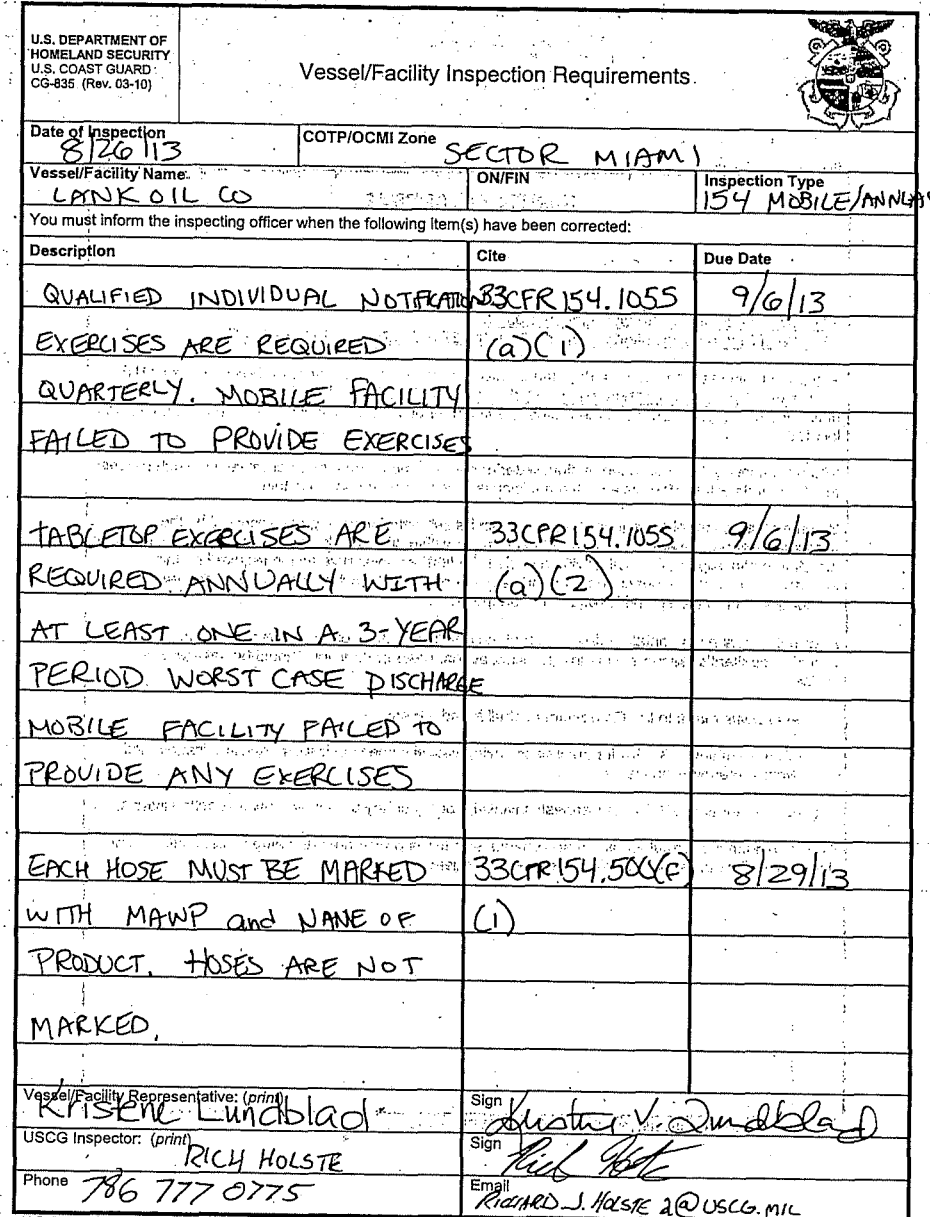 U.S. DEPARTMENT OF
HOMELAND SECURITY
U.S. COAST GUARD
CG-835 (Rev. 03-10)
Vessel/Facility Inspection Requirements
Date of Inspection
8/26/13
COTP/OCMI Zone
SECTOR MIAMI
Vessel/Facility Name
LANK OIL CO
ON/FIN
Inspection Type
154 MOBILE/ANNUAL
You must inform the inspecting officer when the following item(s) have been corrected:
Description Cite Due Date
QUALIFIED INDIVIDUAL NOTIFICATION 33CFR154.1055 9/6/13
EXERCISES ARE REQUIRED (a)(1)
QUARTERLY. MOBILE FACILITY
FAILED TO PROVIDE EXERCISES
TABLETOP EXERCISES ARE 33CFR154.1055 9/6/13
REQUIRED ANNUALLY WITH (a)(2)
AT LEAST ONE IN A 3-YEAR
PERIOD WORST CASE DISCHARGE
MOBILE FACILITY FAILED TO
PROVIDE ANY EXERCISES
EACH HOSE MUST BE MARKED 33CFR154.500(F) 8/29/13
WITH MAWP and NANE OF (1)
PRODUCT. HOSES ARE NOT
MARKED.
Vessel/Facility Representative: (print)
Kristene Lundblad
Sign
Kristene V. Lundblad
USCG Inspector: (print)
RICH HOLSTE
Sign
Rich Holste
Phone 786 777 0775
Email
RICHARD.J.HOLSTE2@USCG.MIL